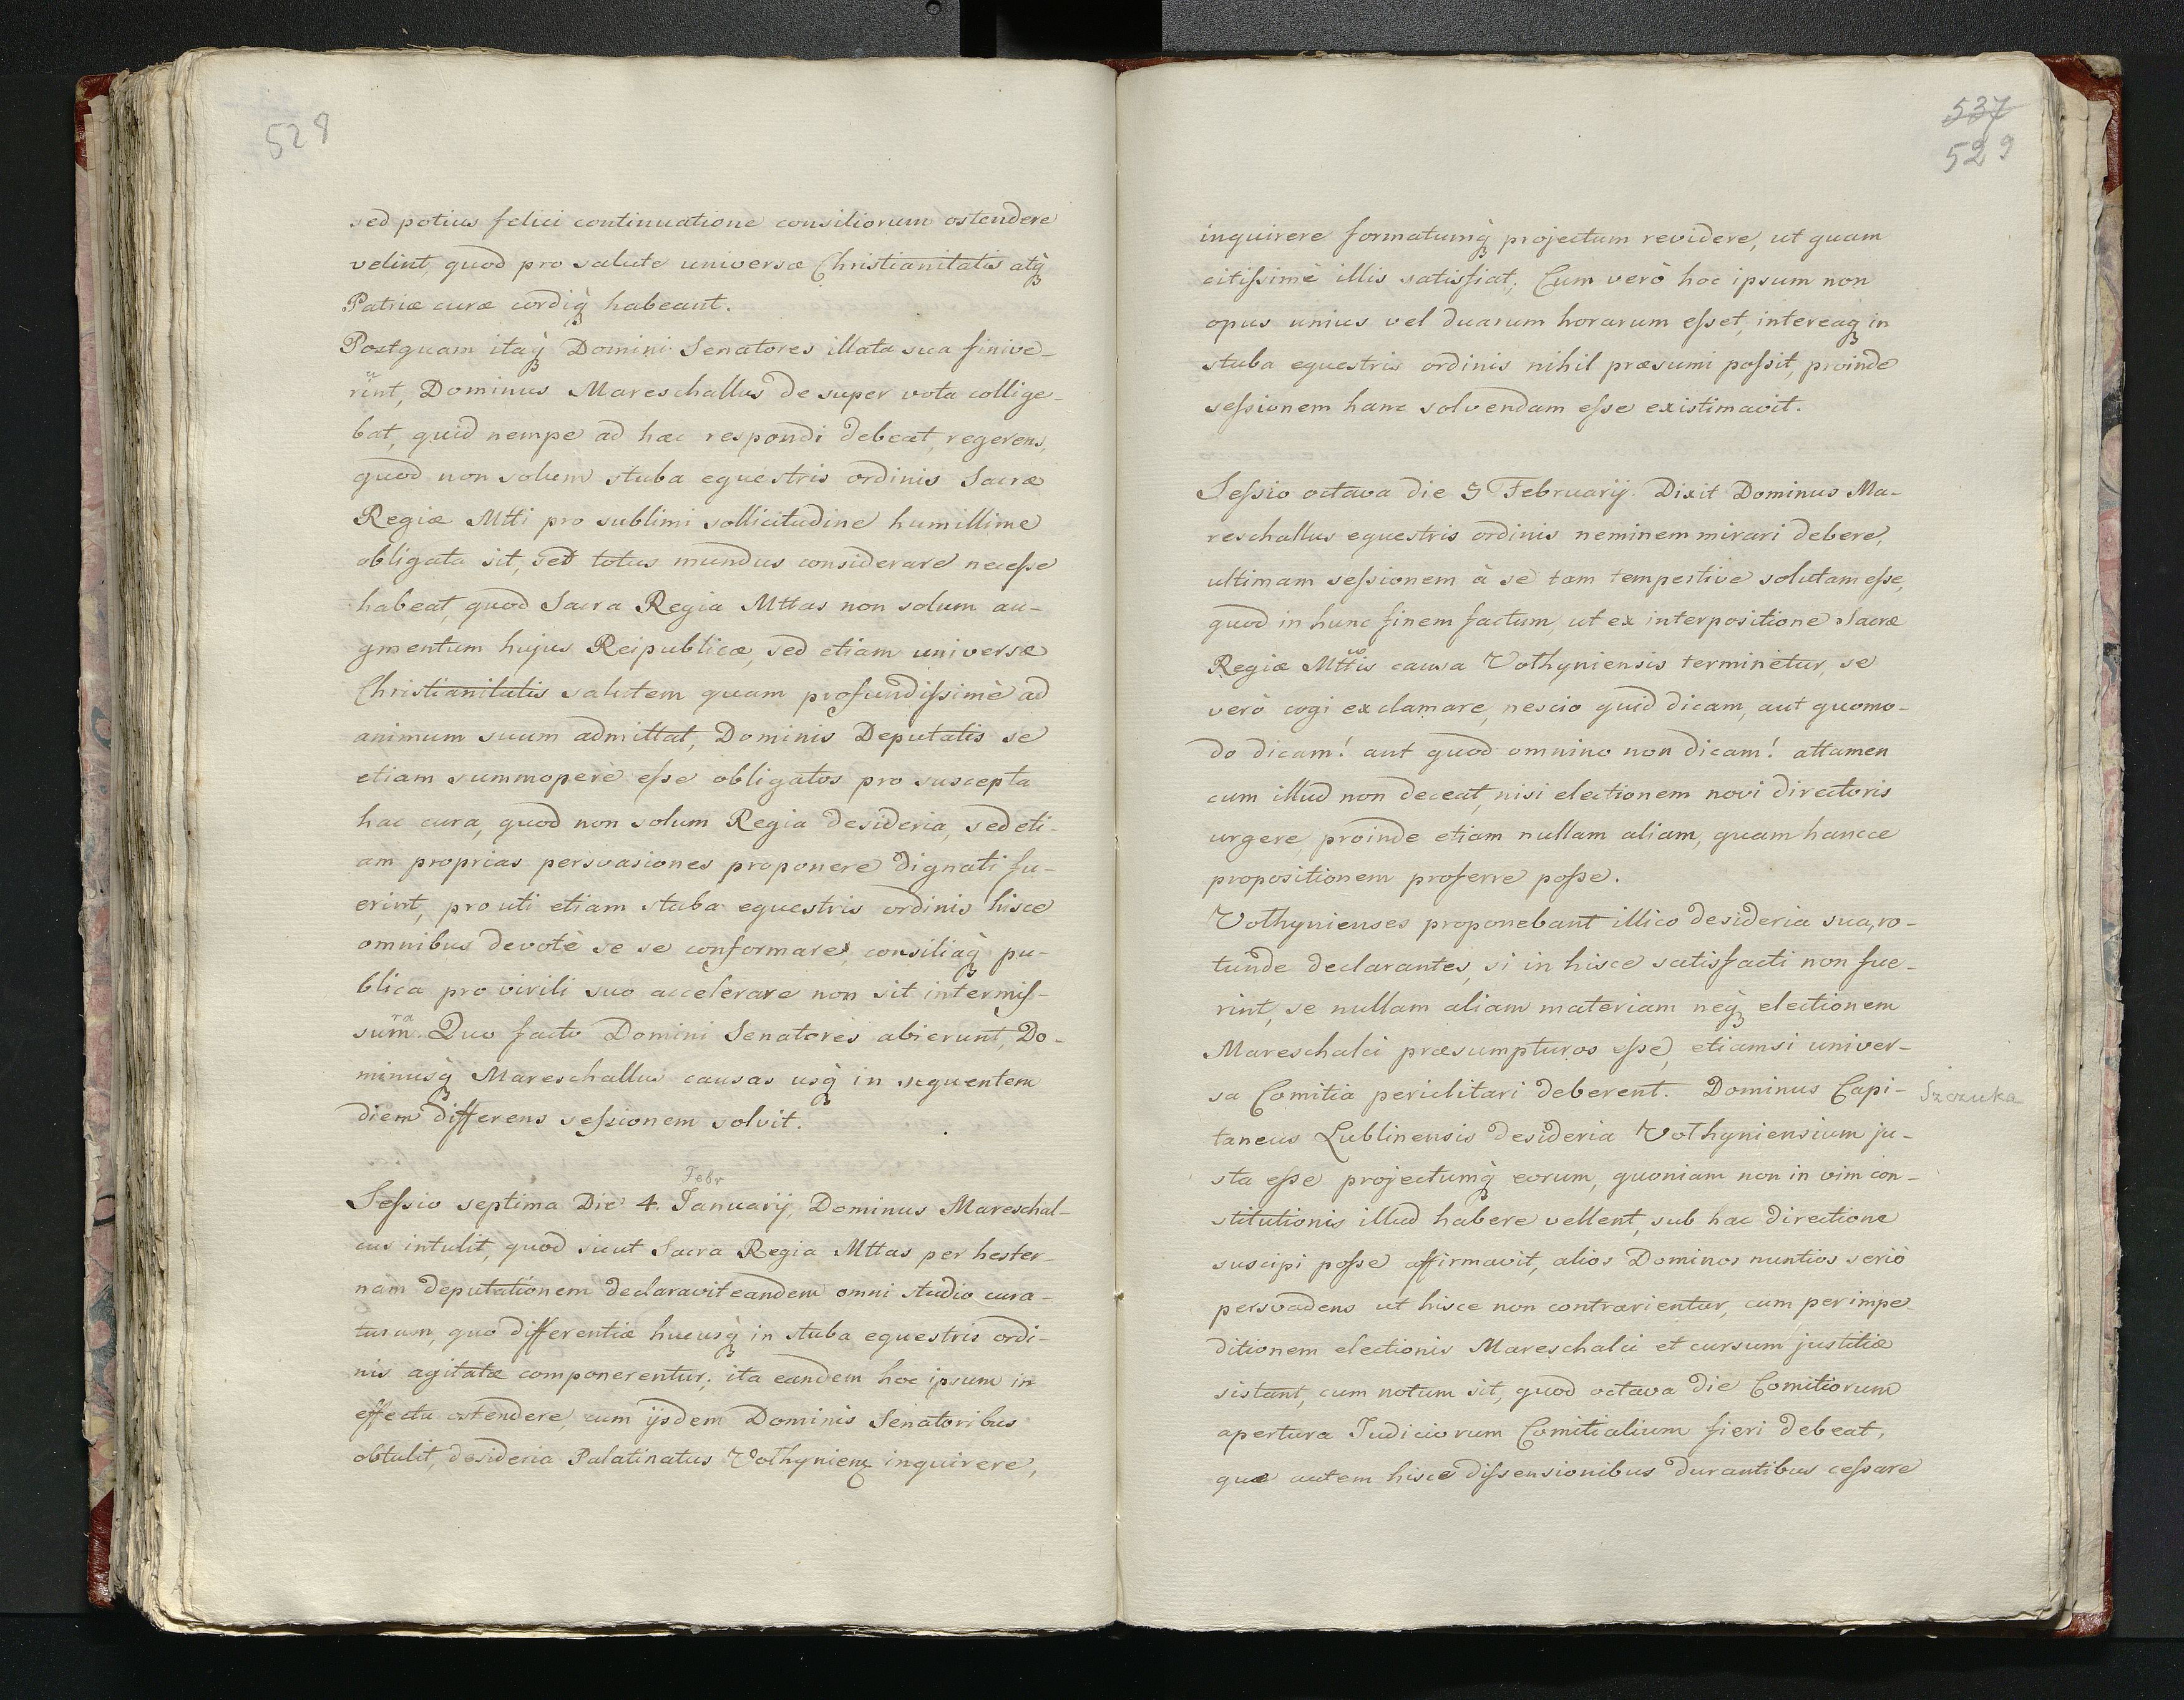 528
sed potius felici continuatione consiliorum ostendere
velint, quod pro salute universæ Christianitatis atq̀
Patriæ curæ cordiq̀ habeant.
Postquam itaq̀ Domini Senatores illata sua finive-
rint, Dominus Mareschallus de super vota collige-
bat, quid nempe ad hæc respondi debeat, regerens,
quod non solum stuba equestris ordinis Sacræ
Regiæ Mtti pro sublimi sollicitudine humillime
obligata sit, sed totus mundus considerare necesse
habeat, quod Sacra Regia Mttas non solum au-
gmentum hujus Reipublicæ, sed etiam universæ
Christianitatis salutem quam profundissimè ad
animum suum admittat, Dominis Deputatis se
etiam summoperè esse obligatos pro suscepta
hac cura, quod non solum Regia desideria, sed eti-
am proprias persvasiones proponere dignati fu-
erint, pro uti etiam stuba equestris ordinis hisce
omnibus devotè se se conformare, consiliaq̀ pu-
blica pro virili suo accelerare non sit intermis-
ra
sum. Quo facto Domini Senatores abierunt, Do-
minusq̀ Mareschallus causas usq̀ in sequentem
diem differens sessionem solvit.
Febr
Sessio septima Die 4. Januarij, Dominus Mareschal-
cus intulit, quod sicut Sacra Regia Mttas per hester-
nam deputationem declaravit eandem omni studio cura-
turam, quo differentiæ hucusq̀ in stuba equestris ordi-
nis agitatæ componerentur; ita eandem hoc ipsum in
effectu ostendere, cum ijsdem Dominis Senatoribus
obtulit, desideria Palatinatus Vothyniens inquirere,
537
529
inquirere formatumq̀ projectum revidere, ut quam
citissimè illis satisfiat; Cum verò hoc ipsum non
opus unius vel duarum horarum esset, intereaq̀ in
stuba equestris ordinis nihil præsumi possit, proinde
sessionem hanc solvendam esse existimavit.
Sessio octava die 5 Februarij. Dixit Dominus Ma-
reschallus equestris ordinis neminem mirari debere,
ultimam sessionem à se tam tempestive solutam esse,
quod in hunc finem factum, ut ex interpositione Sacræ
Regiæ Mttis causa Vothyniensis terminetur, se
verò cogi exclamare, nescio quid dicam, aut quomo-
do dicam! aut quod omnino non dicam! attamen
cum illud non deceat, nisi electionem novi directoris
urgere, proinde etiam nullam aliam, quam hancce
propositionem proferre posse.
Vothynienses proponebant illico desideria sua, ro-
tunde declarantes, si in hisce satisfacti non fue-
rint, se nullam aliam materiam neq̀ electionem
Mareschalci præsumpturos esse, etiamsi univer-
sa Comitia periclitari deberent. Dominus Capi-
Szczuka
taneus Lublinensis desideria Vothyniensium ju-
sta esse projectumq̀ eorum, quoniam non in vim con-
stitutionis illud habere vellent, sub hac directione
suscipi posse affirmavit, alios Dominos nuntios seriò
persvadens ut hisce non contrarientur, cum per impe-
ditionem electionis Mareschalci et cursum justitiæ
sistant, cum notum sit, quod octava die Comitiorum
apertura Judiciorum Comitialium fieri debeat,
quæ autem hisce dissensionibus durantibus cessare